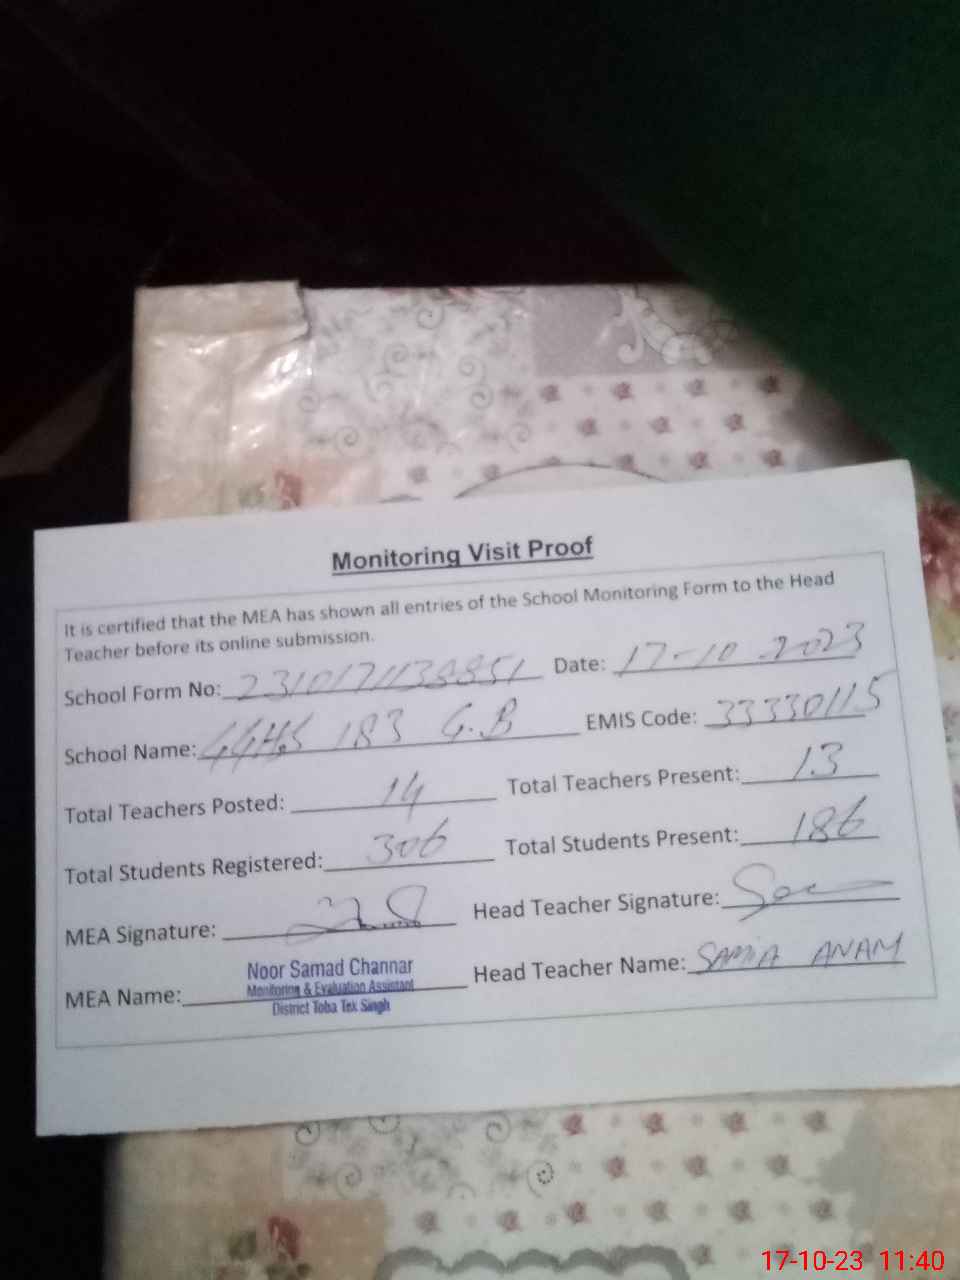 Monitoring Visit Proof
It is certified that the MEA has shown all entries of the School Monitoring Form to the Head
Teacher before its online submission.
School Form No: 2310171138851 Date: 17-10-2023
School Name: GGHS 183 G.B EMIS Code: 33330115
Total Teachers Posted: 14 Total Teachers Present: 13
Total Students Registered: 306 Total Students Present: 186
MEA Signature: Head Teacher Signature:
MEA Name: Noor Samad Channar Head Teacher Name: SAMIA ANAM
Monitoring & Evaluation Assistant
District Toba Tek Singh
17-10-23 11:40